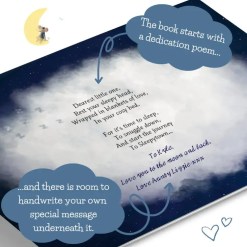 The book starts with
a dedication poem...
Dearest little one,
Rest your sleepy head,
Wrapped in blankets of love,
In your cosy bed.
For it's time to sleep,
To snuggle down,
And start the journey
To Sleepytown...
To Kyla,
Love you to the moon and back,
Love Aunty Lizzie xxx
...and there is room to
handwrite your own
special message
underneath it.